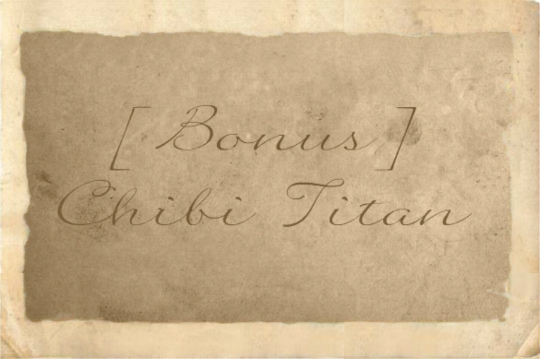 [ Bonus ]
Chibi Titan